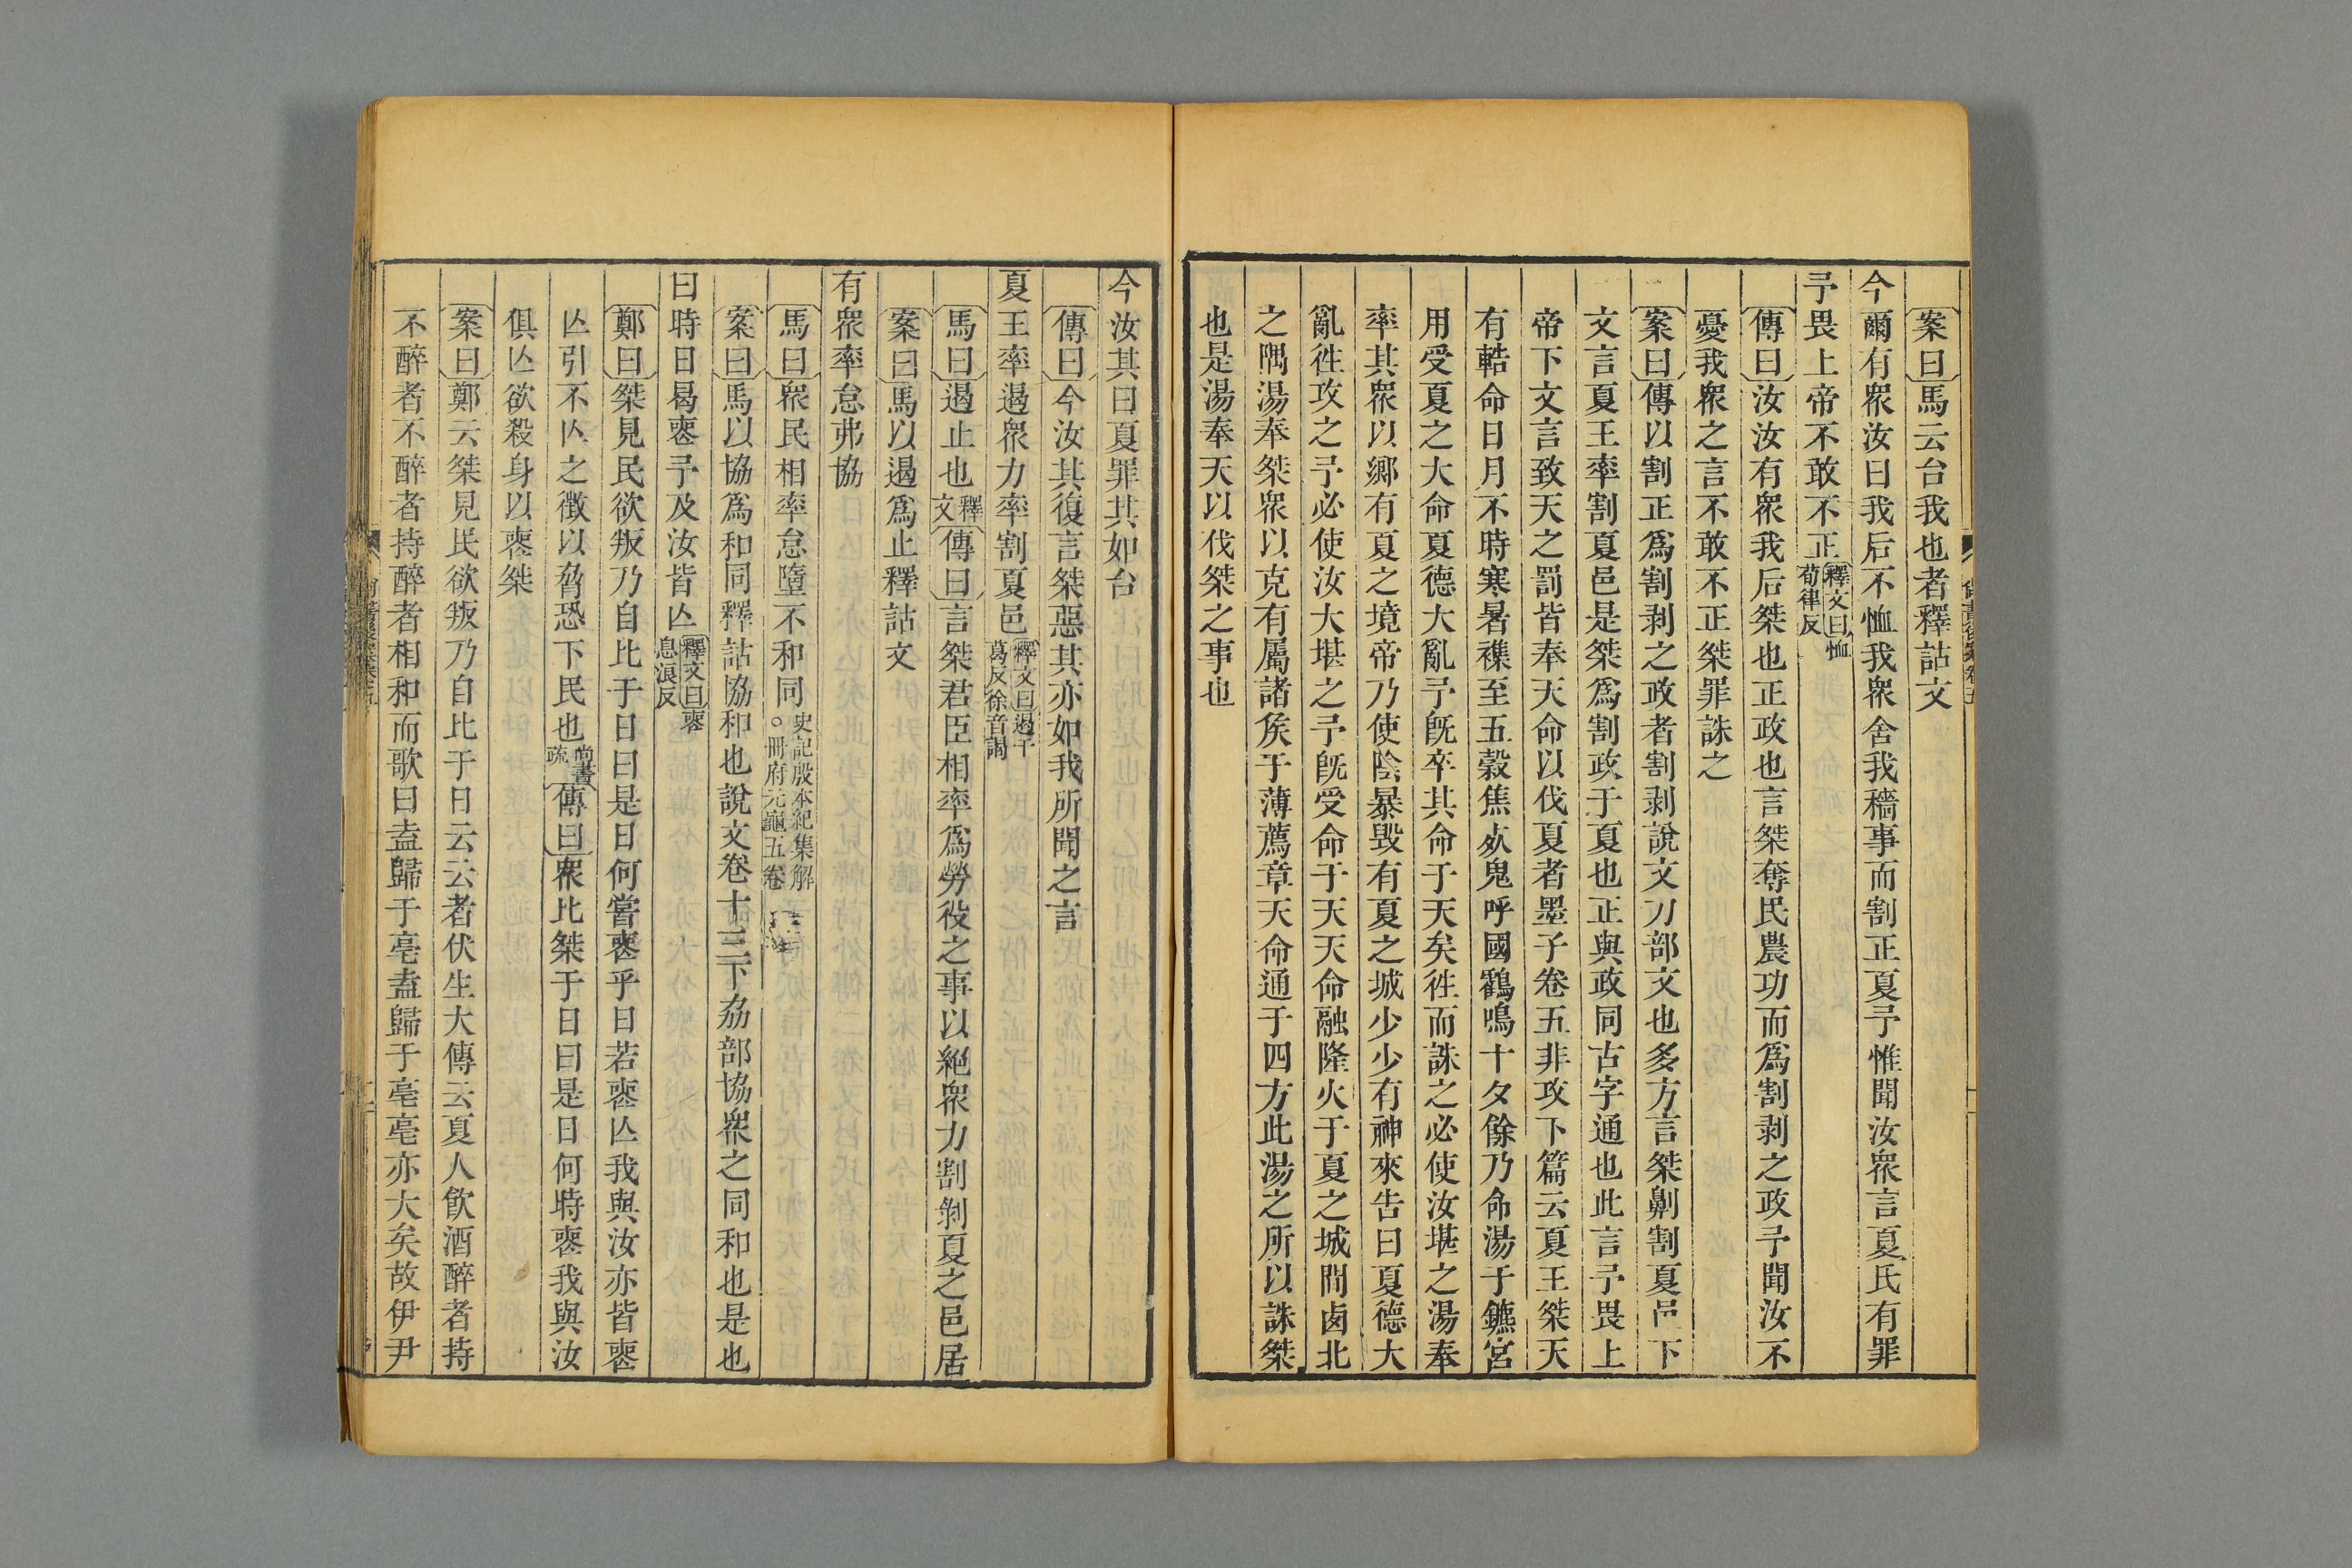 案曰馬云台我也者釋詁文
今爾有衆汝曰我后不恤我衆舍我穡事而割正夏予惟聞汝衆言夏氏有罪
予畏上帝不敢不正釋文曰恤荀律反
傳曰汝汝有衆我后桀也正政也言桀奪民農功而爲割剥之政予聞汝不
憂我衆之言不敢不正桀罪誅之
案曰傳以割正爲割剥之政者割剥說文刀部文也多方言桀劓割夏邑下
文言夏王率割夏邑是桀爲割政于夏也正與政同古字通也此言予畏上
帝下文言致天之罰皆奉天命以伐夏者墨子卷五非攻下篇云夏王桀天
有䡅命日月不時寒暑襍至五穀焦𣦸鬼呼國鸖鳴十夕餘乃命湯于鑣宮
用受夏之大命夏德大亂予旣卒其命于天矣徃而誅之必使汝堪之湯奉
率其衆以鄉有夏之境帝乃使陰暴毀有夏之城少少有神來告曰夏德大
亂徃攻之予必使汝大堪之予旣受命于天天命融隆火于夏之城間鹵北
之隅湯奉桀衆以克有屬諸矦于薄薦章天命通于四方此湯之所以誅桀
也是湯奉天以伐桀之事也
今汝其曰夏罪其如台
傳曰今汝其復言桀惡其亦如我所聞之言
夏王率遏衆力率割夏邑釋文曰遏于葛反徐音謁
馬曰遏止也釋文傳曰言桀君臣相率爲勞役之事以絕衆力割剝夏之邑居
案曰馬以遏爲止釋詁文
有衆率怠弗協
馬曰衆民相率怠墮不和同史記殷本紀集解。冊府元龜五卷
案曰馬以協爲和同釋詁協和也說文卷十三下劦部協衆之同和也是也
曰時日曷喪予及汝皆亾釋文曰喪息浪反
鄭曰桀見民欲叛乃自比于日曰是日何嘗喪乎日若喪亾我與汝亦皆喪
亾引不亾之徵以脅恐下民也尚書疏傳曰衆比桀于日曰是日何時喪我與汝
俱亾欲殺身以喪桀
案曰鄭云桀見民欲叛乃自比于日云云者伏生大傳云夏人飮酒醉者持
不醉者不醉者持醉者相和而歌曰盍歸于亳盍歸于亳亳亦大矣故伊尹